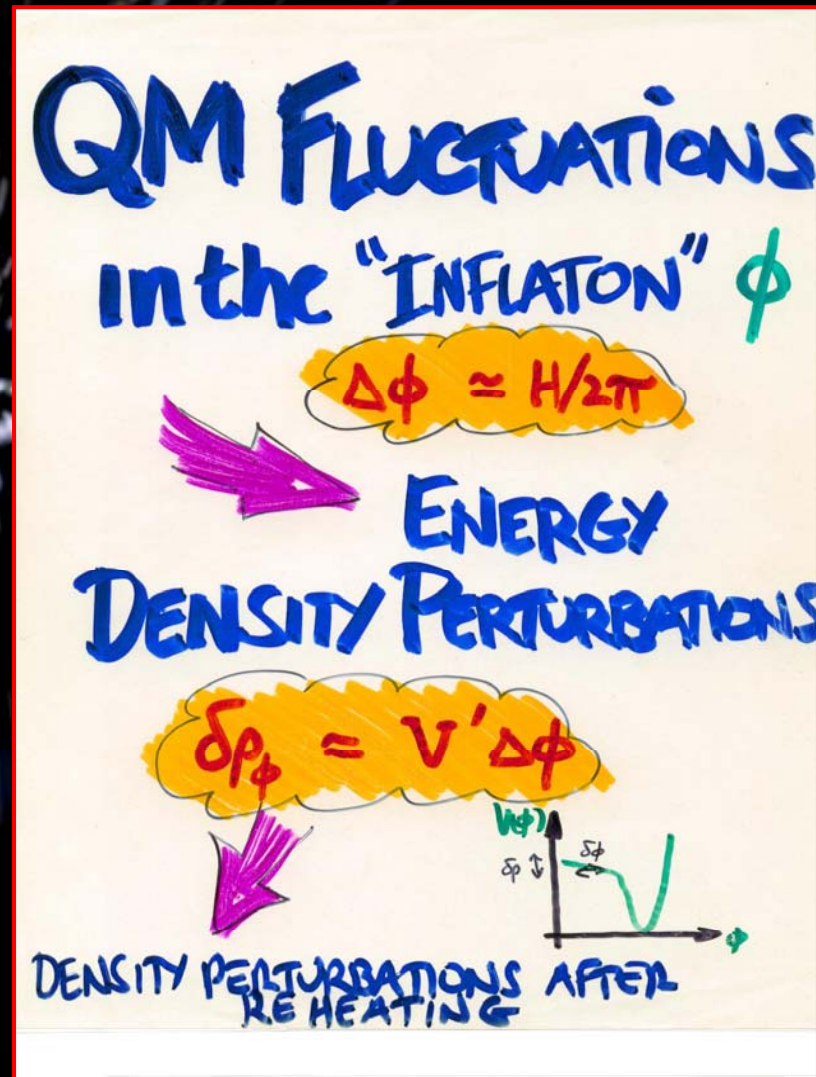 QM FLUCTUATIONS
in the "INFLATON" ϕ
Δϕ ≃ H/2π
ENERGY
DENSITY PERTURBATIONS
δρ_ϕ = V′Δϕ
V(ϕ)
δρ ↕ δϕ
ϕ
DENSITY PERTURBATIONS AFTER
REHEATING